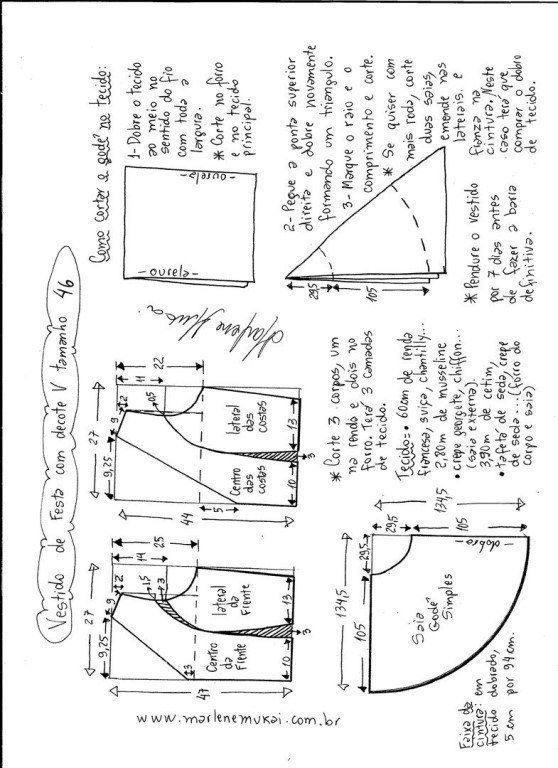 Vestido de Festa com decote V tamanho 46
27
9,25
9
2
1,5
3
14
25
47
3
Centro
da
Frente
lateral
da
Frente
10
3
13
27
9,25
9
2
0,5
11
22
44
5
Centro
das
costas
lateral
das
costas
10
3
13
Como cortar a godê no tecido:
-ourela-
-ourela-
1-Dobre o tecido
ao meio no
sentido do fio
com toda a
largura.
* Corte no forro
e no tecido
principal.
29,5
105
2- Pegue a ponta superior
direita e dobre novamente
formando um triangulo.
3- Marque o raio e o
comprimento e corte.
* Se quiser com
mais roda, corte
duas saias,
emende nas
laterais e
franza na
cintura. Neste
caso terá que
comprar o dobro
de tecido.
* Pendure o vestido
por 7 dias antes
de fazer a barra
definitiva.
Marlene Mukai
* Corte 3 corpos, um
na renda e dois no
forro. Terá 3 camadas
de tecido.
Tecido=• 60cm de renda
francesa, suiça, chantilly...
• crepe georgete, chiffon...
2,80m de musseline
(saia externa).
3,90m de cetim,
• tafeta de seda, crepe
de seda...(forro do
corpo e saia)
134,5
29,5
105
134,5
29,5
105
-dobra-
Saia
Godê
Simples
Faixa da
cintura: em
tecido dobrado,
5 cm por 94 cm.
www.marlenemukai.com.br